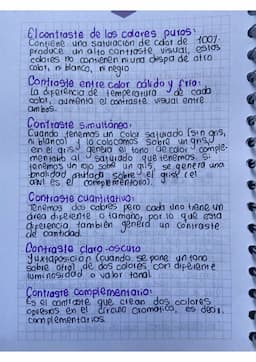 El contraste de los colores puros:
Contiene una saturación de color de 100%.
produce un alto contraste visual, estos
colores no contienen ni una chispa de otro
color, ni blanco, ni negro
Contraste entre color cálido y frío:
La diferencia de temperatura de cada
color, aumenta el contraste visual entre
ambos.
Contraste simultáneo:
Cuando tenemos un color saturado (sin gris,
ni blanco) y lo colocamos sobre un gris,
en el gris genera el tono de color comple-
mentario al saturado que tenemos. Si
tenemos un rojo sobre un gris, se genera una
tonalidad sobre el gris (el
el complementario).
Contraste cuantitativo:
Tenemos dos colores pero cada uno tiene un
área diferente o tamaño, por lo que esta
diferencia también genera un contraste
de cantidad.
Contraste claro-oscuro
Yuxtaposición (cuando se pone un tono
sobre otro) de dos colores con diferente
luminosidad o valor tonal.
Contraste complementario:
Es el contraste que crean dos colores
opuestos en el círculo cromático, es decir,
complementarios.